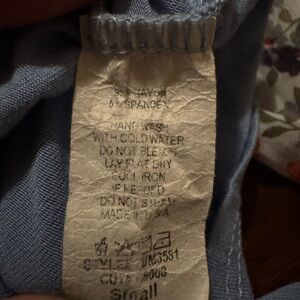 95% RAYON
5% SPANDEX
HAND WASH
WITH COLD WATER
DO NOT BLEACH
LAY FLAT DRY
COOL IRON
IF NEEDED
DO NOT STEAM
MADE IN USA
STYLE#
CUT# 1#008
Small